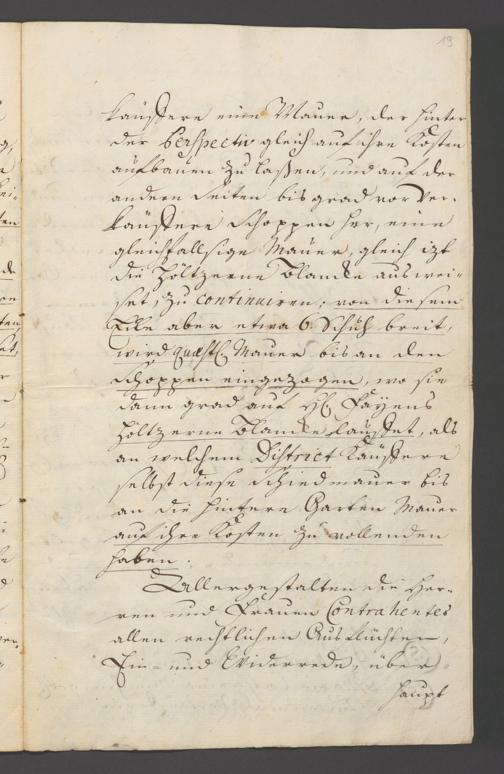 19
käuffere eine Mauer, der hinter
der Perspectiv gleich auf ihre Kosten
aufbauen zu laßen, und auf der
andern Seiten bis grad vor Ver-
käufferi Schoppen her, eine
gleichfallsige Mauer, gleich izt
die höltzerne Blancke auswei-
set, zu continuiren; von diesem
Ecke aber etwa 6. Schuh breit,
wird quæst. Mauer bis an den
Schoppen eingezogen, wo sie
dann grad auf H. Fayens
höltzerne Blancke lauffet, als
an welchem District Käuffere
selbst diese Schiedmauer bis
an die hintere Garten Mauer
auf ihre Kosten zu vollenden
haben.
Allergestalten die Her-
ren und Frauen Contrahentes
allen rechtlichen Ausflüchten,
Ein- und Widerrede, über-
haupt